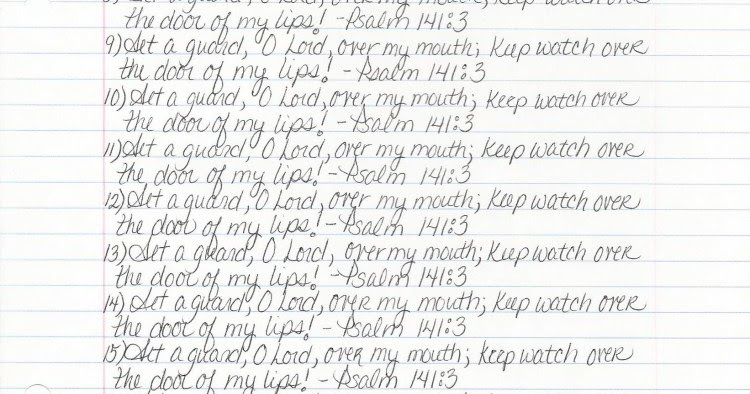 8) Set a guard, O Lord, over my mouth; Keep watch over
the door of my lips! -Psalm 141:3
9) Set a guard, O Lord, over my mouth; Keep watch over
the door of my lips! - Psalm 141:3
10) Set a guard, O Lord, over my mouth; Keep watch over
the door of my lips! - Psalm 141:3
11) Set a guard, O Lord, over my mouth; Keep watch over
the door of my lips! - Psalm 141:3
12) Set a guard, O Lord, over my mouth; Keep watch over
the door of my lips! - Psalm 141:3
13) Set a guard, O Lord, over my mouth; Keep watch over
the door of my lips! - Psalm 141:3
14) Set a guard, O Lord, over my mouth; Keep watch over
the door of my lips! - Psalm 141:3
15) Set a guard, O Lord, over my mouth; Keep watch over
the door of my lips! - Psalm 141:3